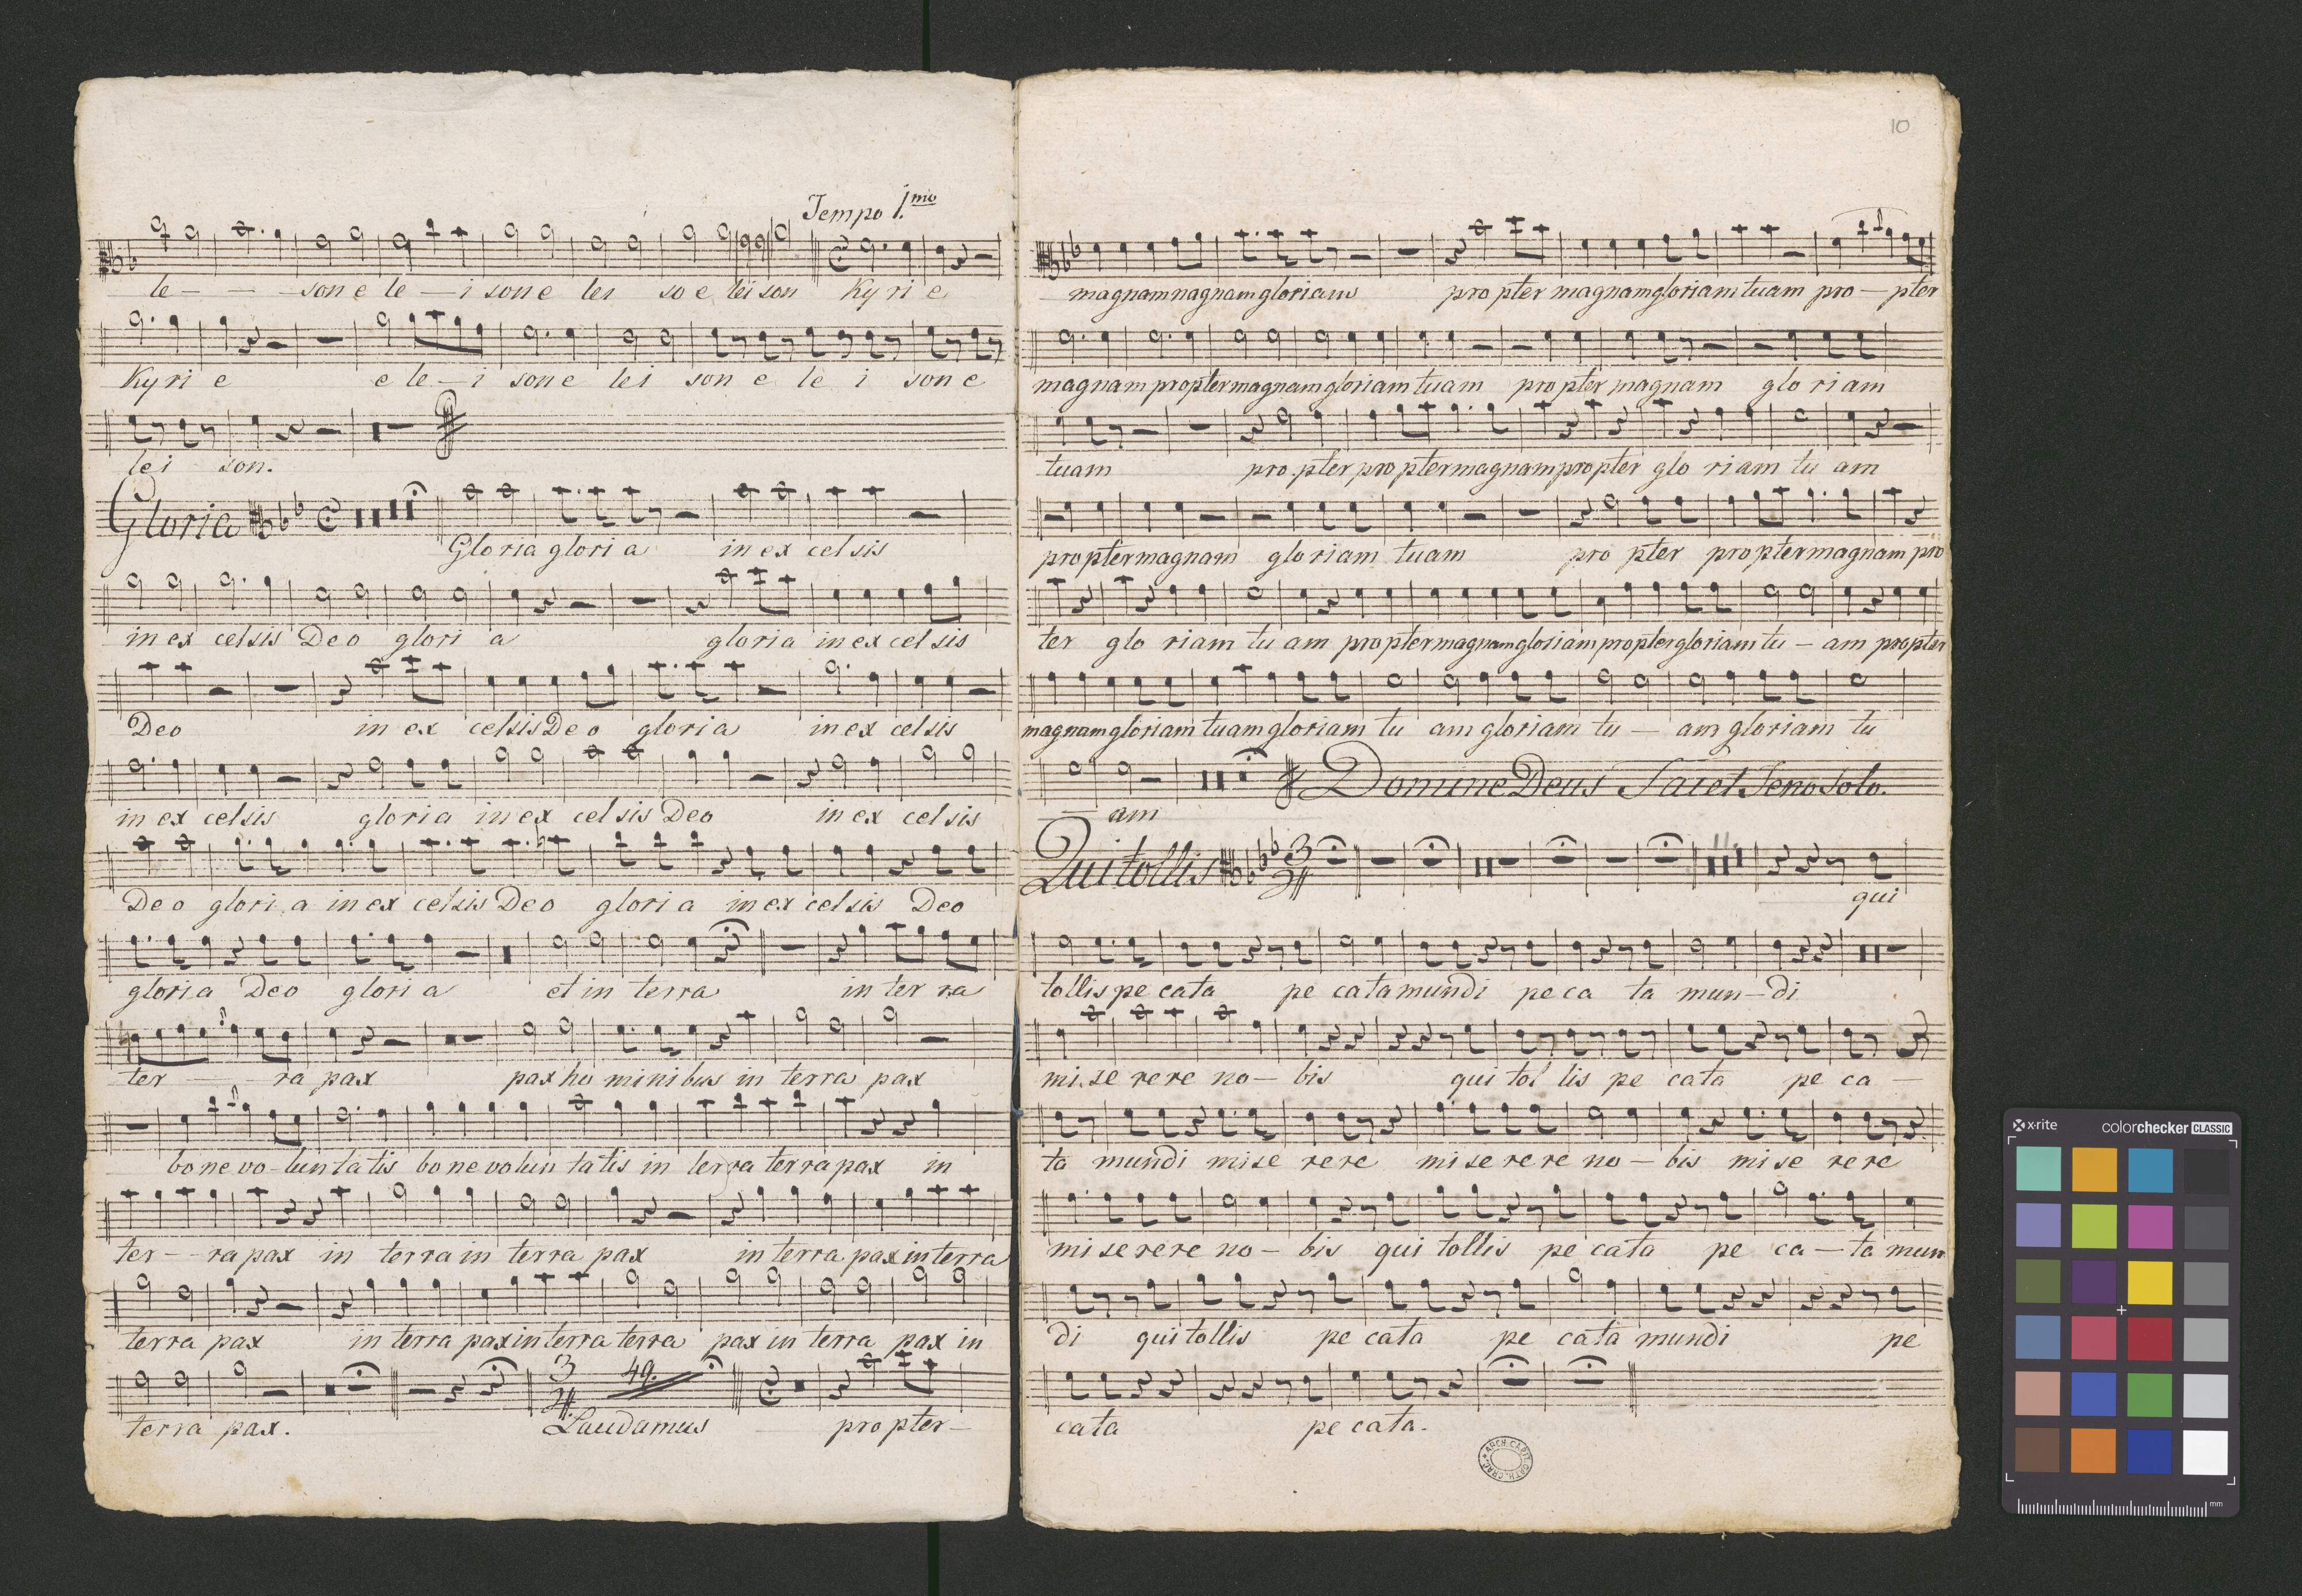 Tempo 1.mo
le - - - son e le - i son e lei so e lei son Ky ri e
Ky ri e e le - i son e lei son e le i son e
lei son.
Gloria
Gloria glori a in ex celsis
in ex celsis Deo glori a gloria in ex cel sis
Deo in ex celsis Deo gloria in ex celsis
in ex celsis gloria in ex cel sis Deo in ex cel sis
Deo glori a in ex celsis Deo glori a in ex cel sis Deo
gloria Deo glori a et in terra in ter ra
ter - - ra pax pax ho mini bus in terra pax
bo ne vo - lun ta tis bo ne volun ta tis in terra terra pax in
ter - - ra pax in terra in terra pax in terra pax in terra
terra pax in terra pax in terra terra pax in terra pax in
3 49.
terra pax. Laudamus pro pter -
10
magnam nagnam gloriam pro pter magnam gloriam tuam pro - pter
magnam propter magnam gloriam tuam pro pter magnam glo ri am
tuam pro pter pro pter magnam pro pter glo riam tu am
pro pter magnam glo riam tuam pro pter pro pter magnam pro
ter glo riam tu am pro pter magnam gloriam propter gloriam tu - am propter
magnam gloriam tuam gloriam tu am gloriam tu - am gloriam tu
Domine Deus Sa et Teno Solo.
am
Qui tollis 3
qui
tollis pe cata pe cata mundi pe ca ta mun - di
mi se re re no - bis qui tol lis pe cata pe ca -
ta mundi mise rere mi se re re no - bis mi se re re
mi se re re no - bis qui tollis pe cata pe ca - ta mun
di qui tollis pe cata pe cata mundi pe
cata pe cata.
ARCH. CAPIT. CATH. CRAC.
x-rite colorchecker CLASSIC
mm